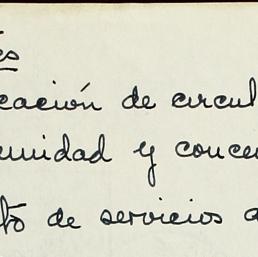 és
cación de circul
unidad y conce
to de servicios a